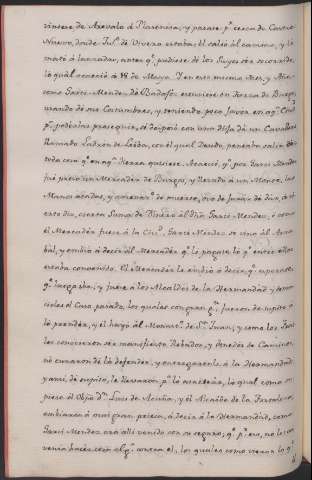 viniese de Arevalo á Plasencia, y pasase p.r cerca de Castro
Nuevo, donde Ju.o de Vivero estaba: él salió al camino, y lo
mató á lanzadas, antes q.e pudiese de los suyos ser socorrido
lo qual acaeció á 18 de Mayo. Y en este mismo Mes, y Año
como Garci-Mendez de Badajoz estuviese en tierra de Burgos
usando de sus costumbres, y teniendo poco favor en aq.l
p.a poderlas proseguir, se desposó con una hija de un Cavallero
llamado Ladron de Leiba, con el qual daudo, penso en salir con
toda cosa q.e en aq.a tierra quisiese. Acaeció q.e por Garci Mendez
fué preso un Mercader de Burgos, y llevado á un Monte, las
Manos atadas, y amenaz.o de muerte, ovo de jurar de dar, á
cierto dia, cierta suma de Dinero al d.ho Garci-Mendez, é como
el Mercader fuese á la Ciu.d Garci-Mendez se vino al Arra-
bal, y embió á decir al Mercader q.e le pagase lo q.e entre ellos
estaba conocido. El Mercader le embió á decir q.e esperase
q.e le pagaba, y fuese á los Alcaldes de la Hermandad y
el Caso pasado, los quales con gran fueron de supito á
lo prender, y él huyó al Monast.o de S.n Juan, y como los Frai-
les conocieron ser manifiesto Robador, y
no curaron de lo defender, y entregaronle á la Hermandad
y ansi, de supito, le llevaron p.a lo asaetear, lo qual como su-
piese el Obpo D.n Luis de Acuña, y el Alcaide de la Fortaleza
embiaron á muy gran priesa, á decir á la Hermandad, como
Garci Mendez era allí venido con su seguro, q.e p.r eso, no le con-
venia hacer cosa alg.a contra él, los quales como vieron lo q.e